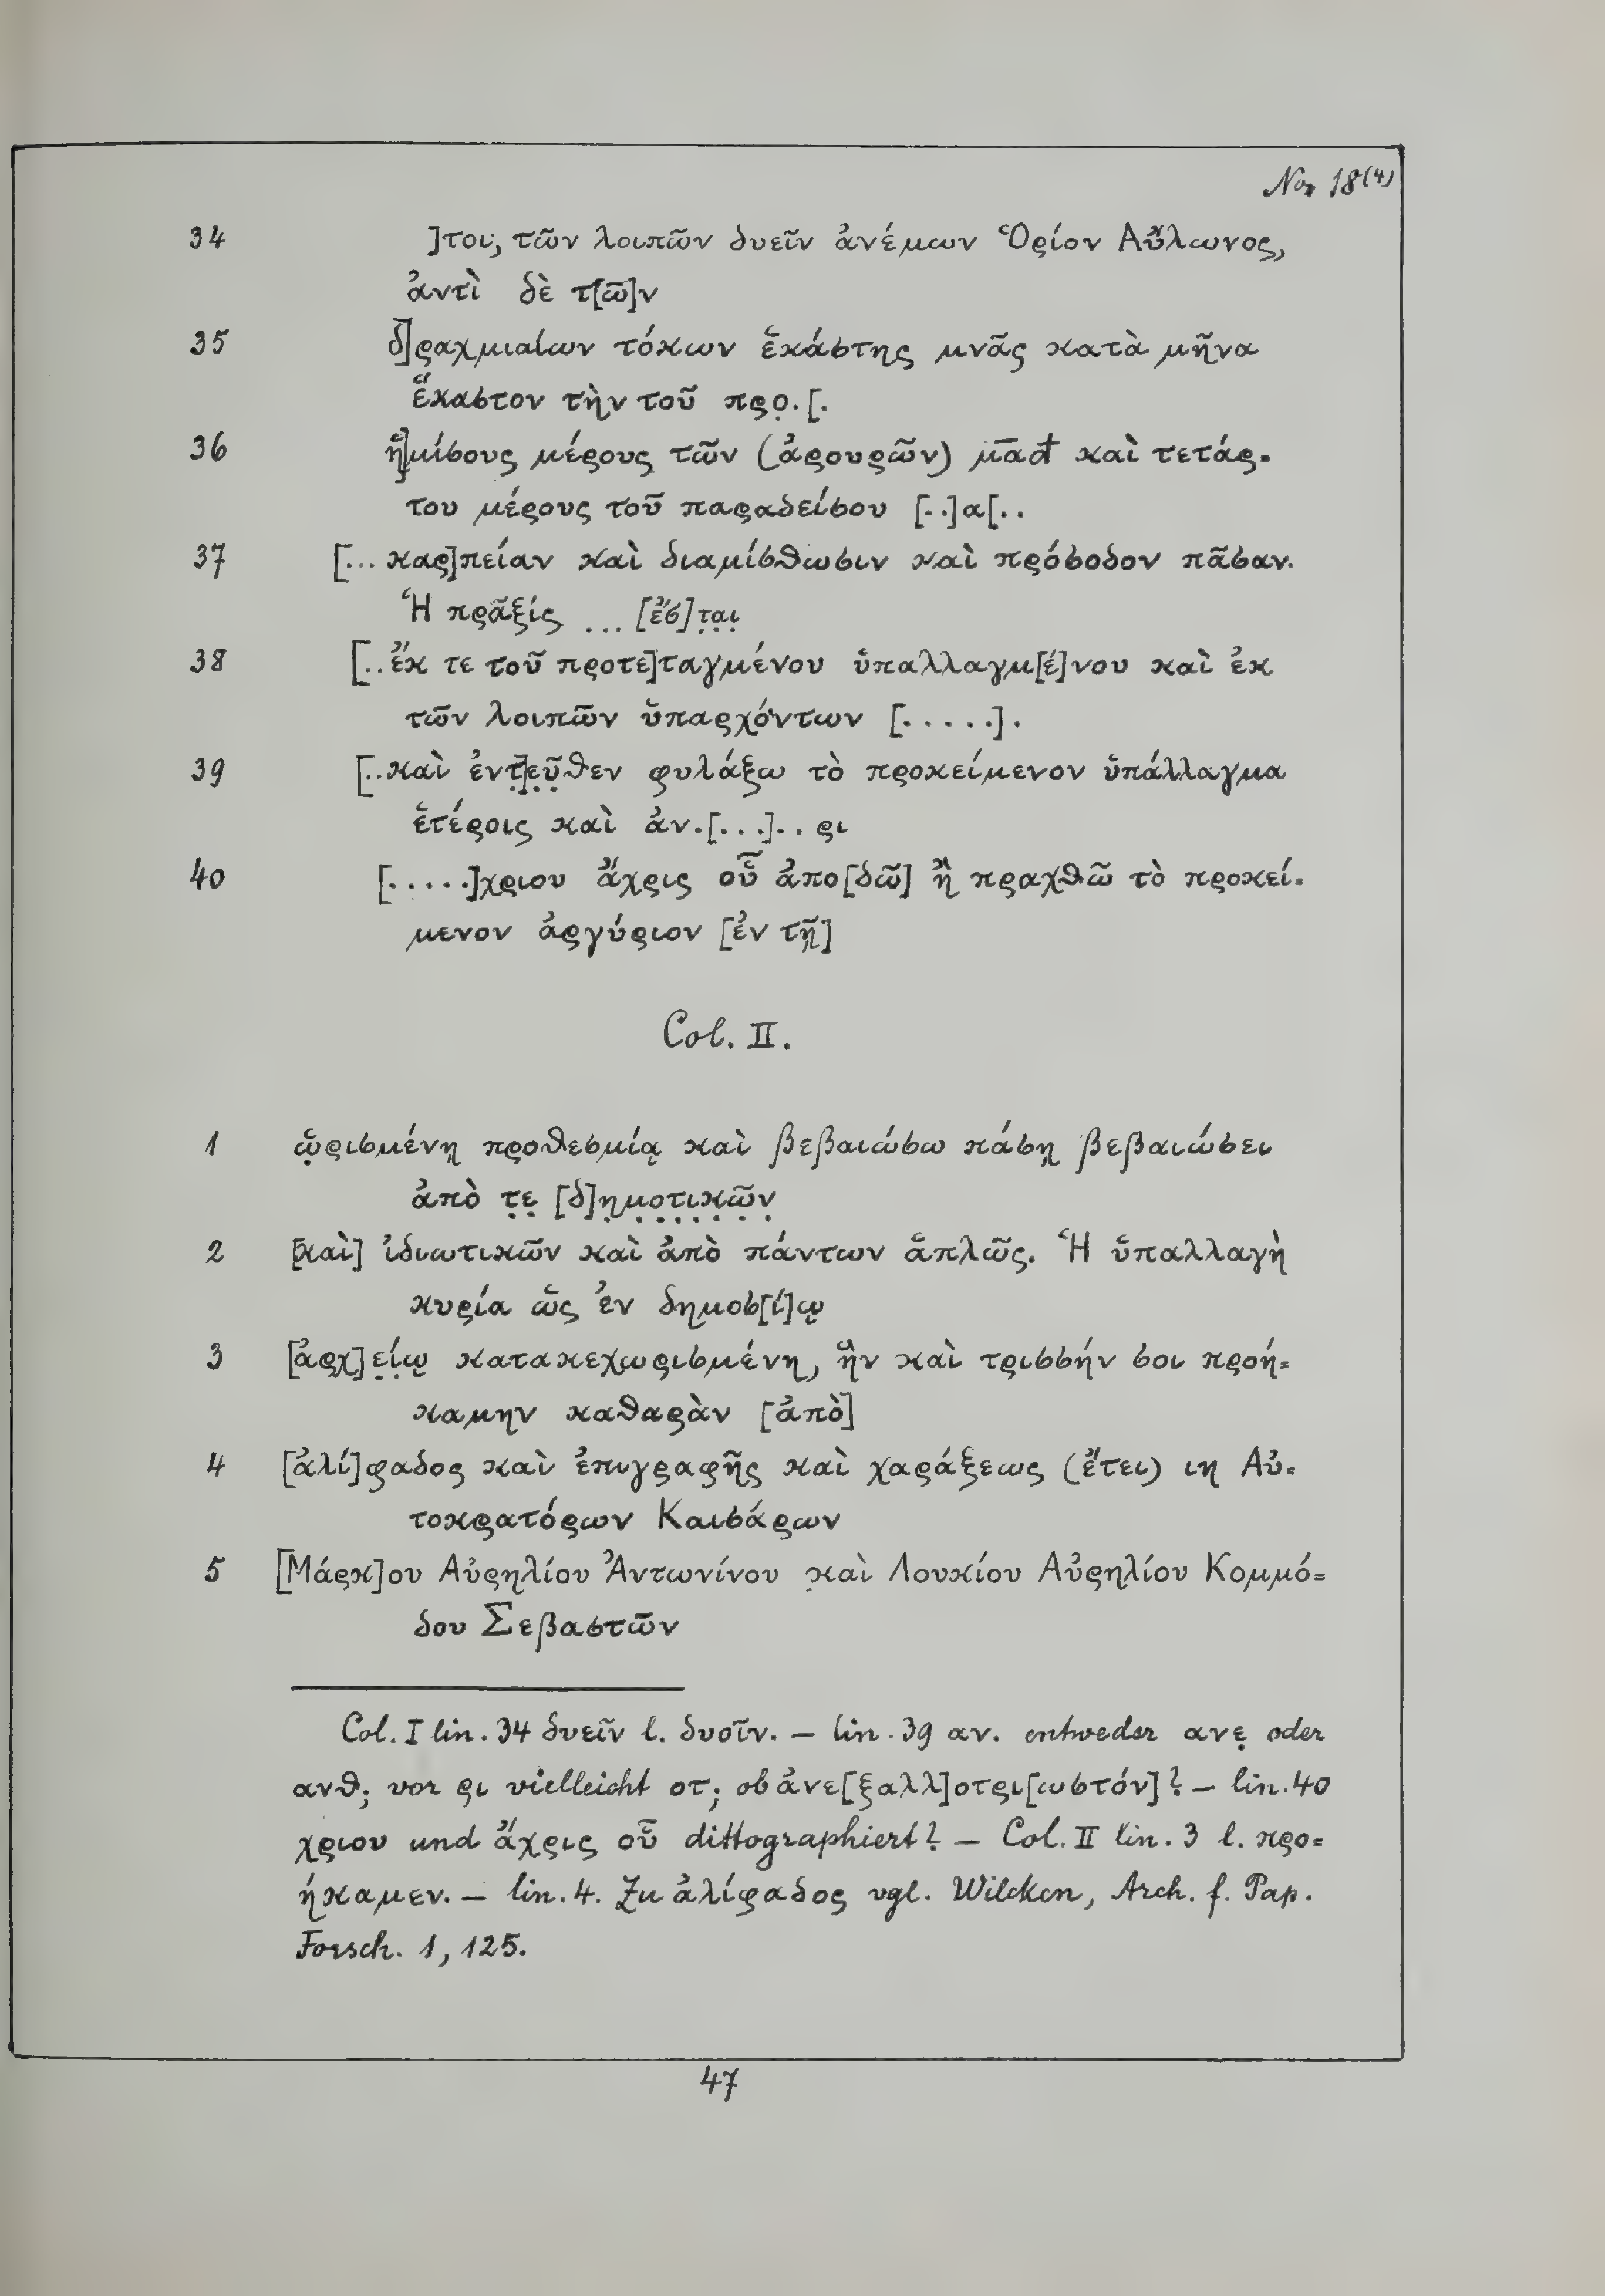 No 18(4)
34 ]τοι, τῶν λοιπῶν δυεῖν ἀνέμων Ὁρίον Αὔλωνος,
ἀντὶ δὲ τ[ῶ]ν
35 δ]ραχμιαίων τόκων ἑκάστης μνᾶς κατὰ μῆνα
ἕκαστον τὴν τοῦ πρọ.[.
36 ἡ]μίσους μέρους τῶν (ἀρουρῶν) μ̅αd καὶ τετάρ=
του μέρους τοῦ παραδείσου [..]α[..
37 [...καρ]πείαν καὶ διαμίσθωσιν καὶ πρόσοδον πᾶσαν.
Ἡ πρᾶξίς ... [ἔσ]τ̣α̣ι̣
38 [..ἔκ τε τοῦ προτε]ταγμένου ὑπαλλαγμ[έ]νου καὶ ἐκ
τῶν λοιπῶν ὑπαρχόντων [.....].
39 [..καὶ ἐντ̣]ε̣ῦ̣θεν φυλάξω τὸ προκείμενον ὑπάλλαγμα
ἑτέροις καὶ ἀν.[...]..ρι
40 [.....]χριου ἄχρις οὗ ἀπο[δῶ] ἢ πραχθῶ τὸ προκεί=
μενον ἀργύριον [ἐν τῇ]
Col. II.
1 ὡ̣ρισμένῃ προθεσμίᾳ καὶ βεβαιώσω πάσῃ βεβαιώσει
ἀπὸ τ̣ε̣ [δ]η̣μ̣ο̣τ̣ι̣κ̣ῶ̣ν̣
2 [καὶ] ἰδιωτικῶν καὶ ἀπὸ πάντων ἁπλῶς. Ἡ ὑπαλλαγὴ
κυρία ὡς ἐν δημοσ[ί]ῳ
3 [ἀρχ]ε̣ί̣ῳ κατακεχωρισμένη, ἣν καὶ τρισσήν σοι προή=
καμην καθαρὰν [ἀπὸ]
4 [ἀλί]φαδος καὶ ἐπιγραφῆς καὶ χαράξεως (ἔτει) ιη Αὐ=
τοκρατόρων Καισάρων
5 [Μάρκ]ου Αὐρηλίου Ἀντωνίνου κ̣αὶ Λουκίου Αὐρηλίου Κομμό=
δου Σεβαστῶν
Col. I lin. 34 δυεῖν l. δυοῖν. – lin. 39 αν. entweder ανε̣ oder
ανθ; vor ρι vielleicht οτ; ob ἀνε[ξαλλ]οτρι[ωστόν]? – lin. 40
χριου und ἄχρις οὗ dittographiert? – Col. II lin. 3 l. προ=
ήκαμεν. – lin. 4. Zu ἀλίφαδος vgl. Wilcken, Arch. f. Pap.
Forsch. 1, 125.
47